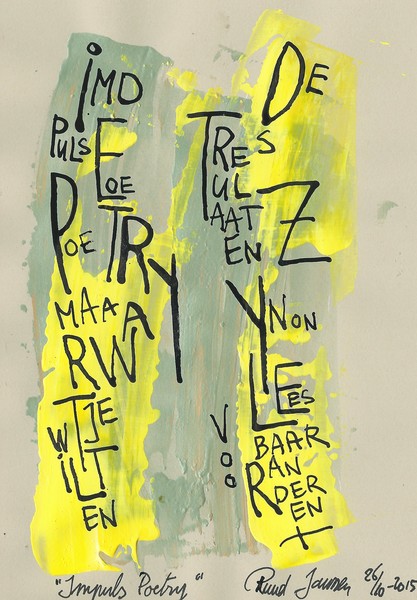 iMD
PULSE
LOE
POETRY
MAAA
RW
TJE
WILT
EN
DE
TRES
UL
AAT
EN Z
YNON
LEES
BAAR
VOO
RAN
DER
EN
+
"Impuls Poetry" Ruud Janssen 26/10-2015